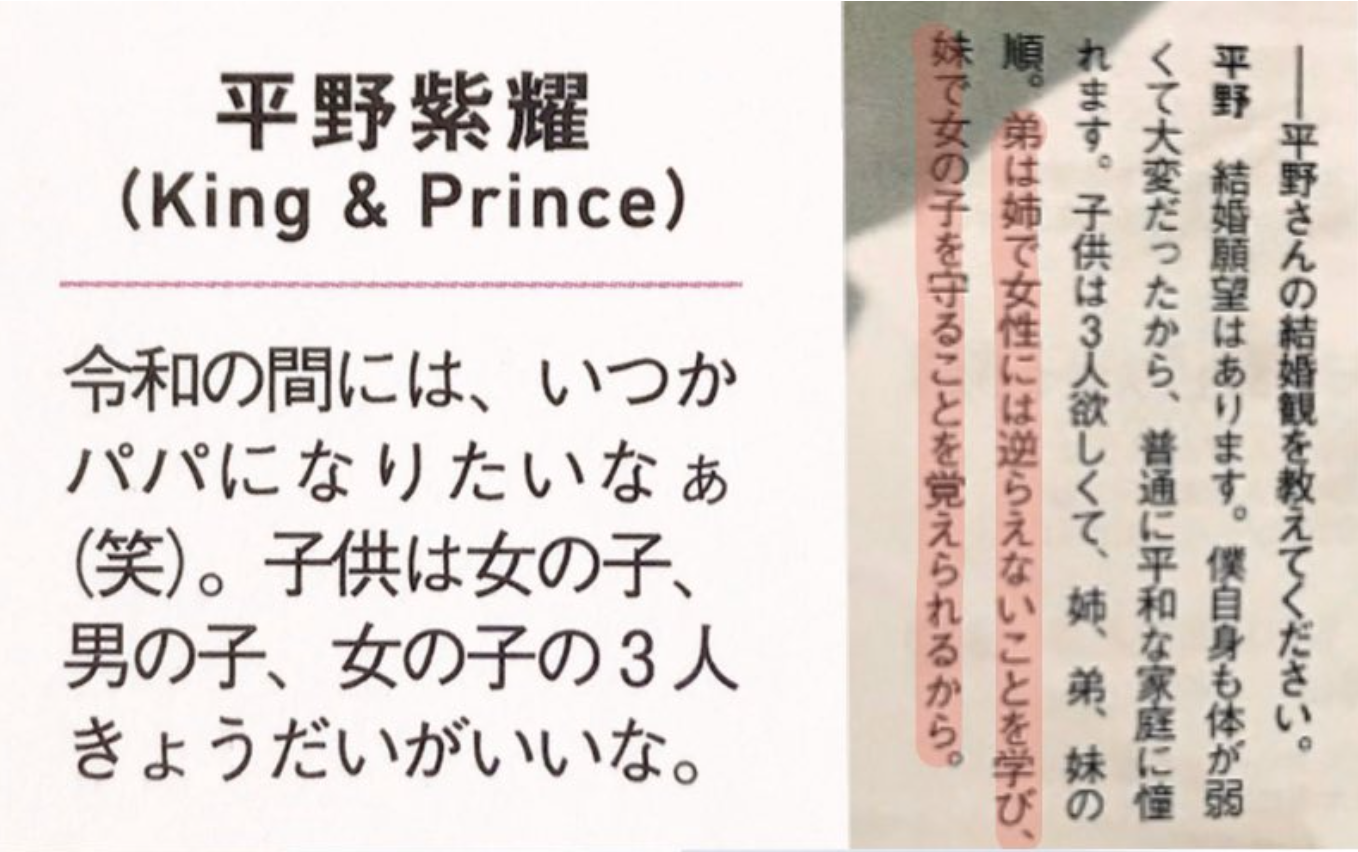 平野紫耀
(King & Prince)
令和の間には、いつか
パパになりたいなぁ
(笑)。子供は女の子、
男の子、女の子の3人
きょうだいがいいな。
――平野さんの結婚観を教えてください。
平野　結婚願望はあります。僕自身も体が弱
くて大変だったから、普通に平和な家庭に憧
れます。子供は3人欲しくて、姉、弟、妹の
順。弟は姉で女性には逆らえないことを学び、
妹で女の子を守ることを覚えられるから。